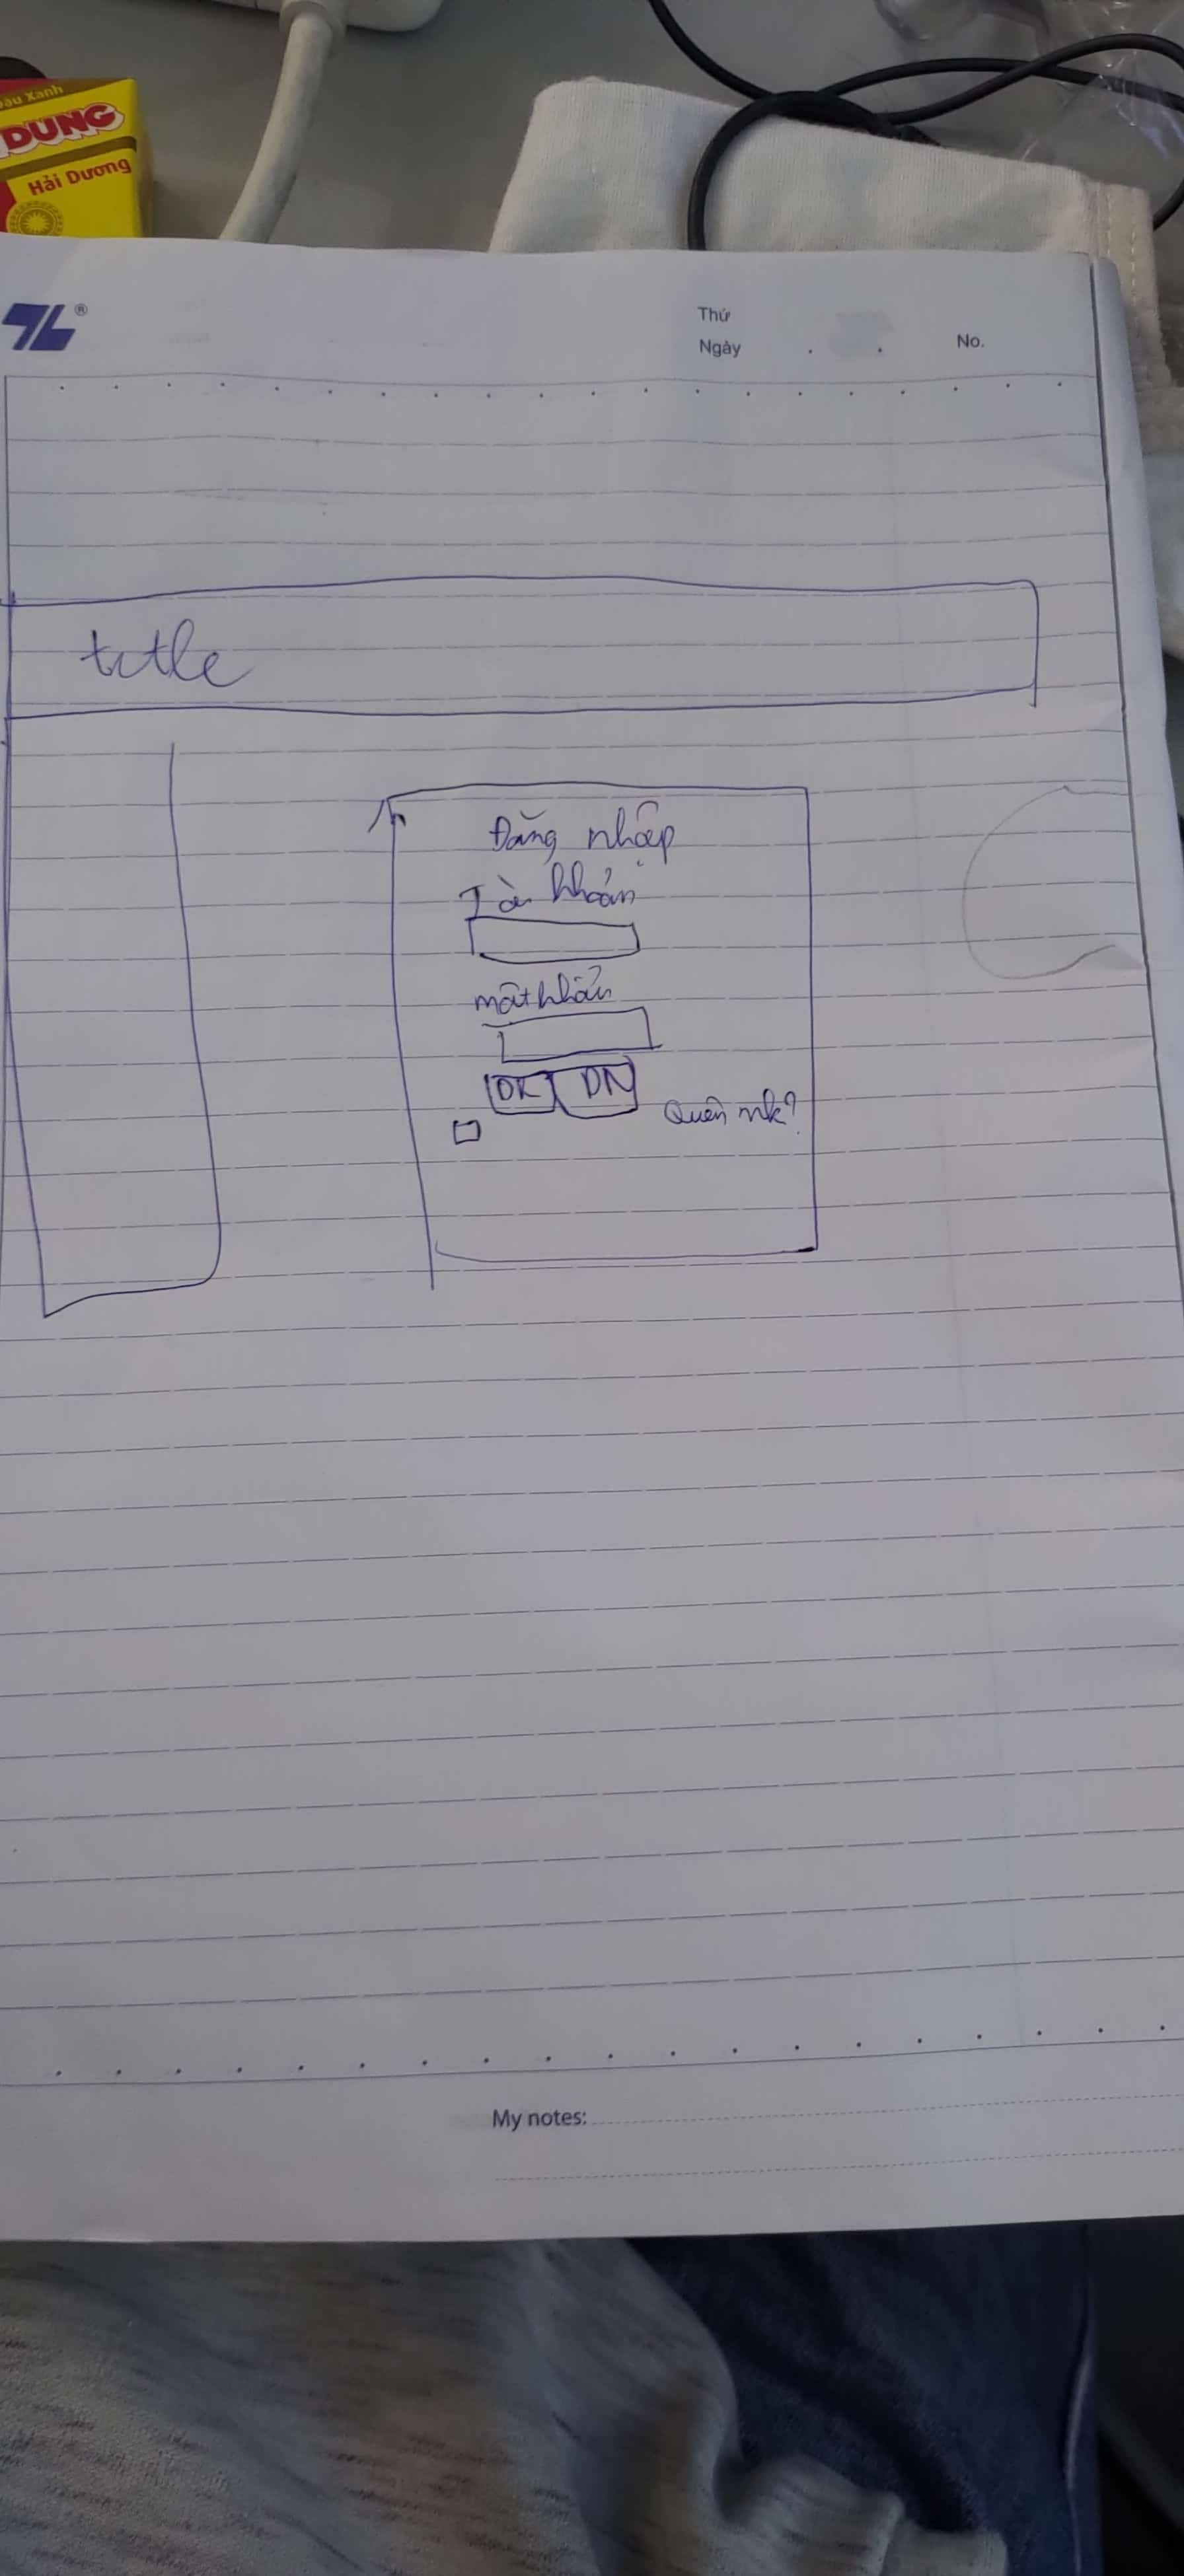 Đậu Xanh
DUNG
Hải Dương
TL®
Thứ
Ngày . .
No.
title
Đăng nhập
Tài khoản
mật khẩu
ĐK ĐN
Quên mk?
My notes: